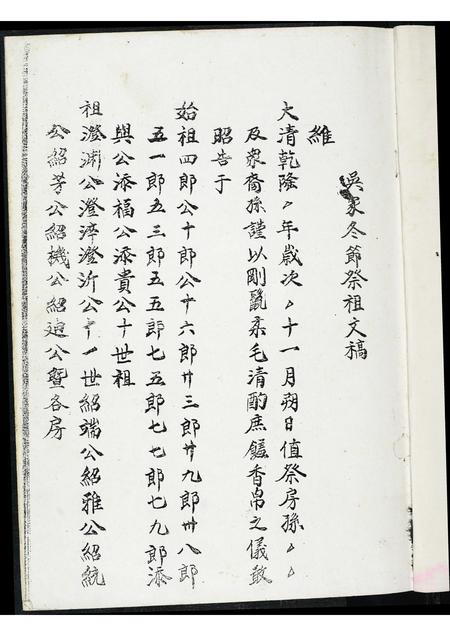 吳家冬節祭祖文稿
維
大清乾隆〻年歲次〻十一月朔日值祭房孫〻〻
及衆裔孫謹以剛鬛柔毛清酌庶饈香帛之儀敢
昭告于
始祖四郎公十郎公十六郎卄三郎卄九郎卅八郎
五一郎五三郎五五郎七五郎七七郎七九郎添
與公添福公添貴公十世祖
祖澄渊公澄淬澄沂公十一世紹端公紹雅公紹統
公紹芳公紹機公紹公暨各房